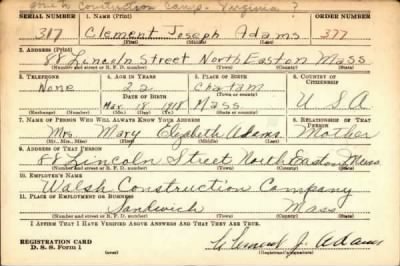 Gone to Construction Camp - Virginia ?
SERIAL NUMBER 1. NAME (Print) ORDER NUMBER
317 Clement Joseph Adams 377
(First) (Middle) (Last)
2. ADDRESS (Print)
88 Lincoln Street North Easton Mass
(Number and street or R. F. D. number) (Town) (County) (State)
3. TELEPHONE 4. AGE IN YEARS 5. PLACE OF BIRTH 6. COUNTRY OF CITIZENSHIP
None 22 Chatam
DATE OF BIRTH (Town or county)
Mar. 18, 1918 Mass. U S A
(Exchange) (Number) (Mo.) (Day) (Yr.) (State or country)
7. NAME OF PERSON WHO WILL ALWAYS KNOW YOUR ADDRESS 8. RELATIONSHIP OF THAT PERSON
Mrs. Mary Elizabeth Adams Mother
(Mr., Mrs., Miss) (First) (Middle) (Last)
9. ADDRESS OF THAT PERSON
88 Lincoln Street North Easton Mass.
(Number and street or R. F. D. number) (Town) (County) (State)
10. EMPLOYER'S NAME
Walsh Construction Company
11. PLACE OF EMPLOYMENT OR BUSINESS
Sandwich Mass
(Number and street or R. F. D. number) (Town) (County) (State)
I AFFIRM THAT I HAVE VERIFIED ABOVE ANSWERS AND THAT THEY ARE TRUE.
REGISTRATION CARD
D. S. S. Form 1 Clement J. Adams
(Registrant's signature)